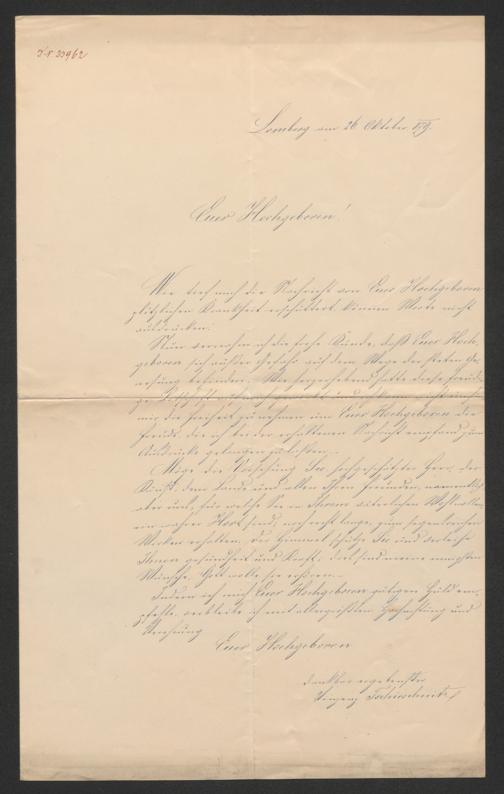 J.N. 33962
Lemberg am 26 Oktober 879.
Euer Hochgeboren!
Wie tief mich die Nachricht von Euer Hochgeboren
plötzlichen Krankheit erschüttert können Worte nicht
ausdrücken.
Nun vernehm ich die frohe Kunde, daß Euer Hoch-
geboren sich außer Gefahr auf dem Wege der steten Ge-
nesung befinden. Wie herzerhebend hatte diese freudi-
ge
mir die Freiheit zu nehmen um Euer Hochgeboren die
Freude, die ich bei der erhaltenen Nachricht empfand zum
Ausdrucke gelangen zu lassen.
Möge die Vorsehung Sie hochgeschätzter Herr, der
Kunst, dem Lande und allen Ihren Freunden, namentlich
aber uns, für welche Sie in Ihrem väterlichen Wohlwollen
ein wahrer Hort sind, noch recht lange, zum segensreichen
Wirken erhalten, der Himmel schütze Sie und verleihe
Ihnen Gesundheit und Kraft, dies sind meine innigsten
Wünsche. Gott wolle sie erhören.
Indem ich mich Euer Hochgeboren gütigen Huld em-
pfehle, verbleibe ich mit allergrößter Hochachtung und
Verehrung
Euer Hochgeboren
dankbar ergebenster